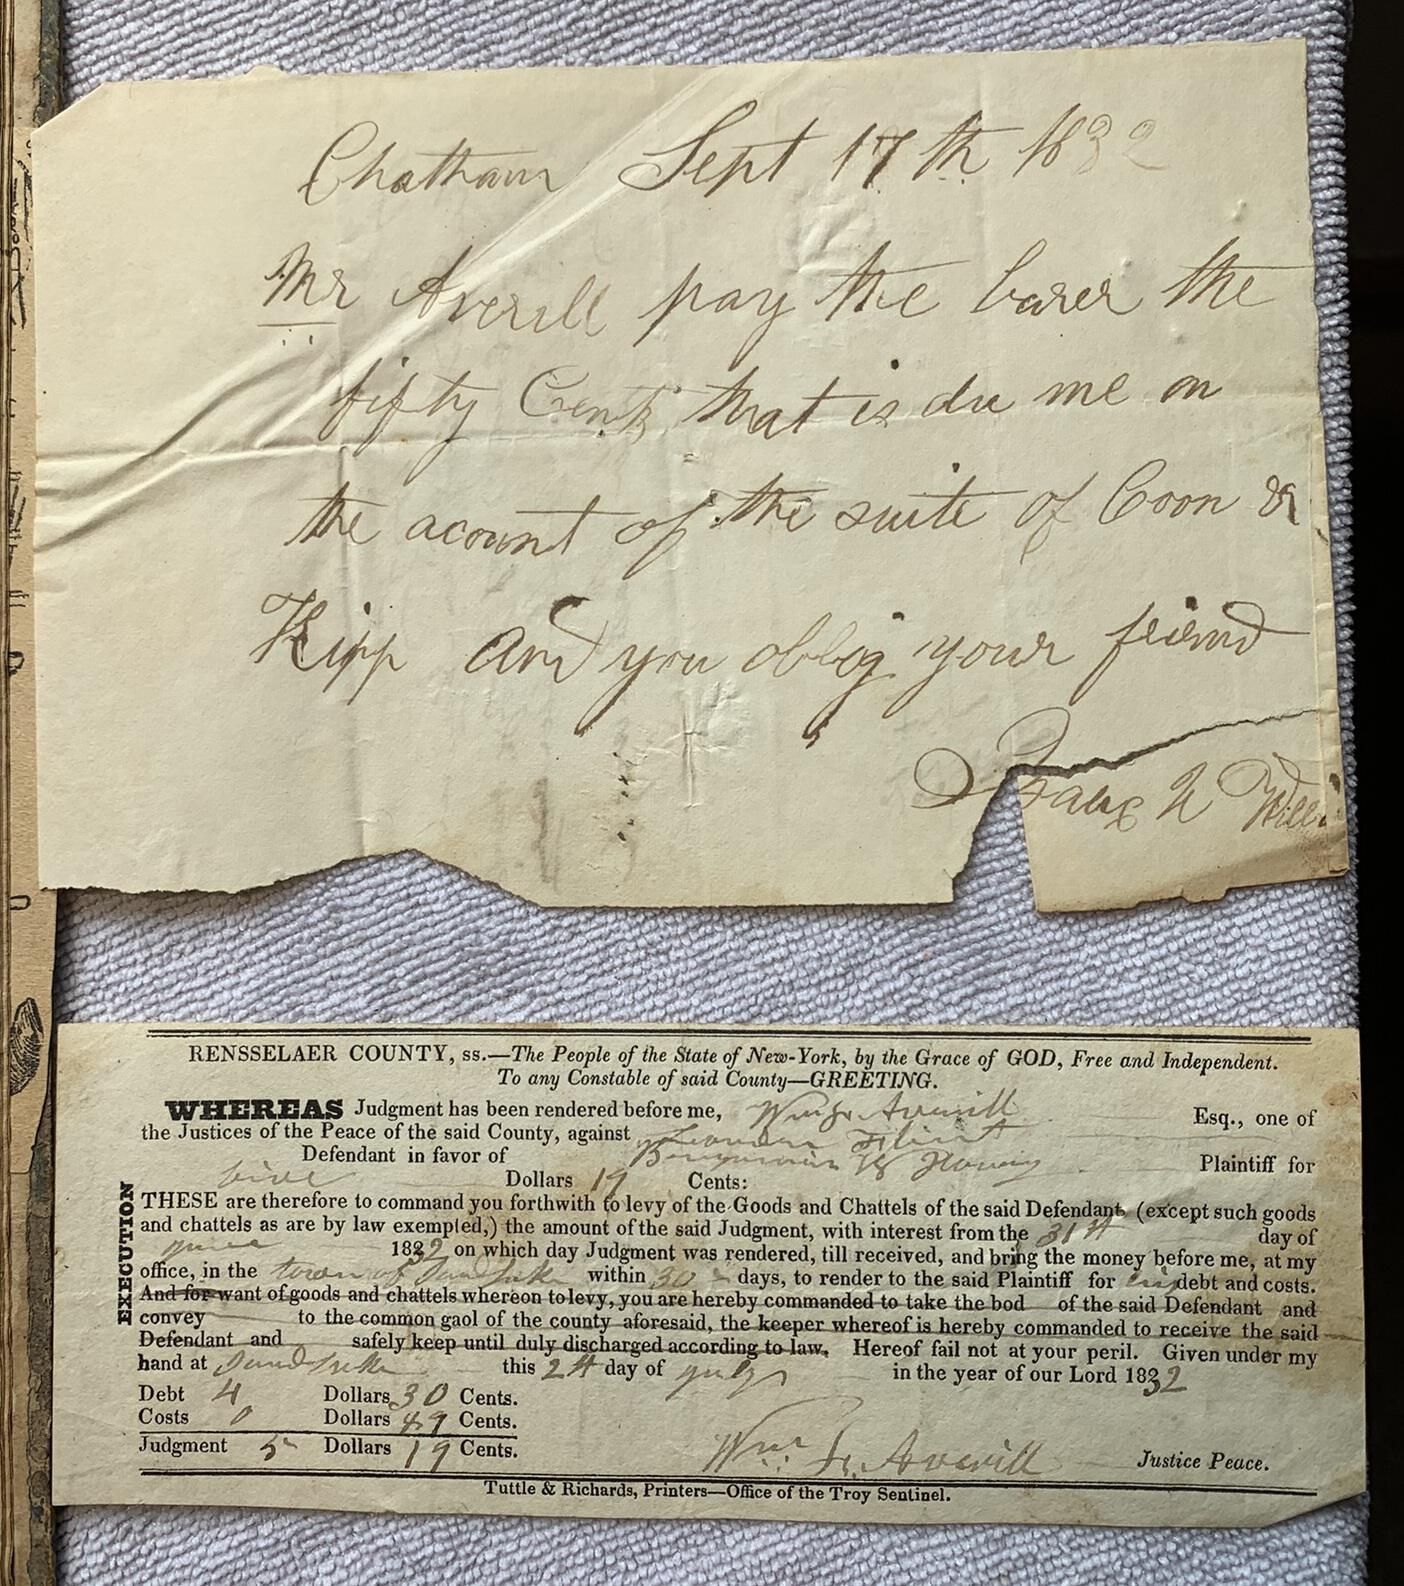 Chatham Sept 17th 1832
Mr Averill pay the barer the
fifty Cents that is du me on
the acount of the suite of Coon &
Kipp and you oblig your friend
N Will
RENSSELAER COUNTY, ss.—The People of the State of New-York, by the Grace of GOD, Free and Independent.
To any Constable of said County—GREETING.
WHEREAS Judgment has been rendered before me, Wm Averill Esq., one of
the Justices of the Peace of the said County, against Flint
Defendant in favor of Benjamin Plaintiff for
five Dollars 19 Cents:
EXECUTION
THESE are therefore to command you forthwith to levy of the Goods and Chattels of the said Defendant, (except such goods
and chattels as are by law exempted,) the amount of the said Judgment, with interest from the 31st day of
1832 on which day Judgment was rendered, till received, and bring the money before me, at my
office, in the town of Sand Lake within 30 days, to render to the said Plaintiff for his debt and costs.
And for want of goods and chattels whereon to levy, you are hereby commanded to take the bod of the said Defendant and
convey to the common gaol of the county aforesaid, the keeper whereof is hereby commanded to receive the said
Defendant and safely keep until duly discharged according to law. Hereof fail not at your peril. Given under my
hand at Sand Lake this 2d day of July in the year of our Lord 1832
Debt 4 Dollars 30 Cents.
Costs 0 Dollars 89 Cents.
Judgment 5 Dollars 19 Cents.
Wm Averill Justice Peace.
Tuttle & Richards, Printers—Office of the Troy Sentinel.